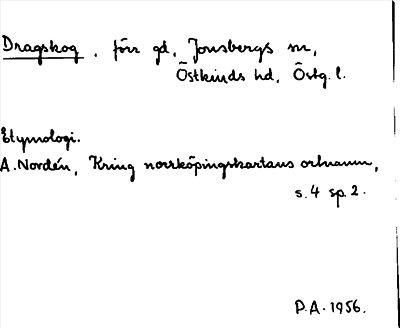 Dragskog, förr gd, Jonsbergs sn,
Östkinds hd, Östg. l.
Etymologi.
A. Nordén, Kring norrköpingskartans ortnamn,
s. 4 sp. 2.
P.A. 1956.